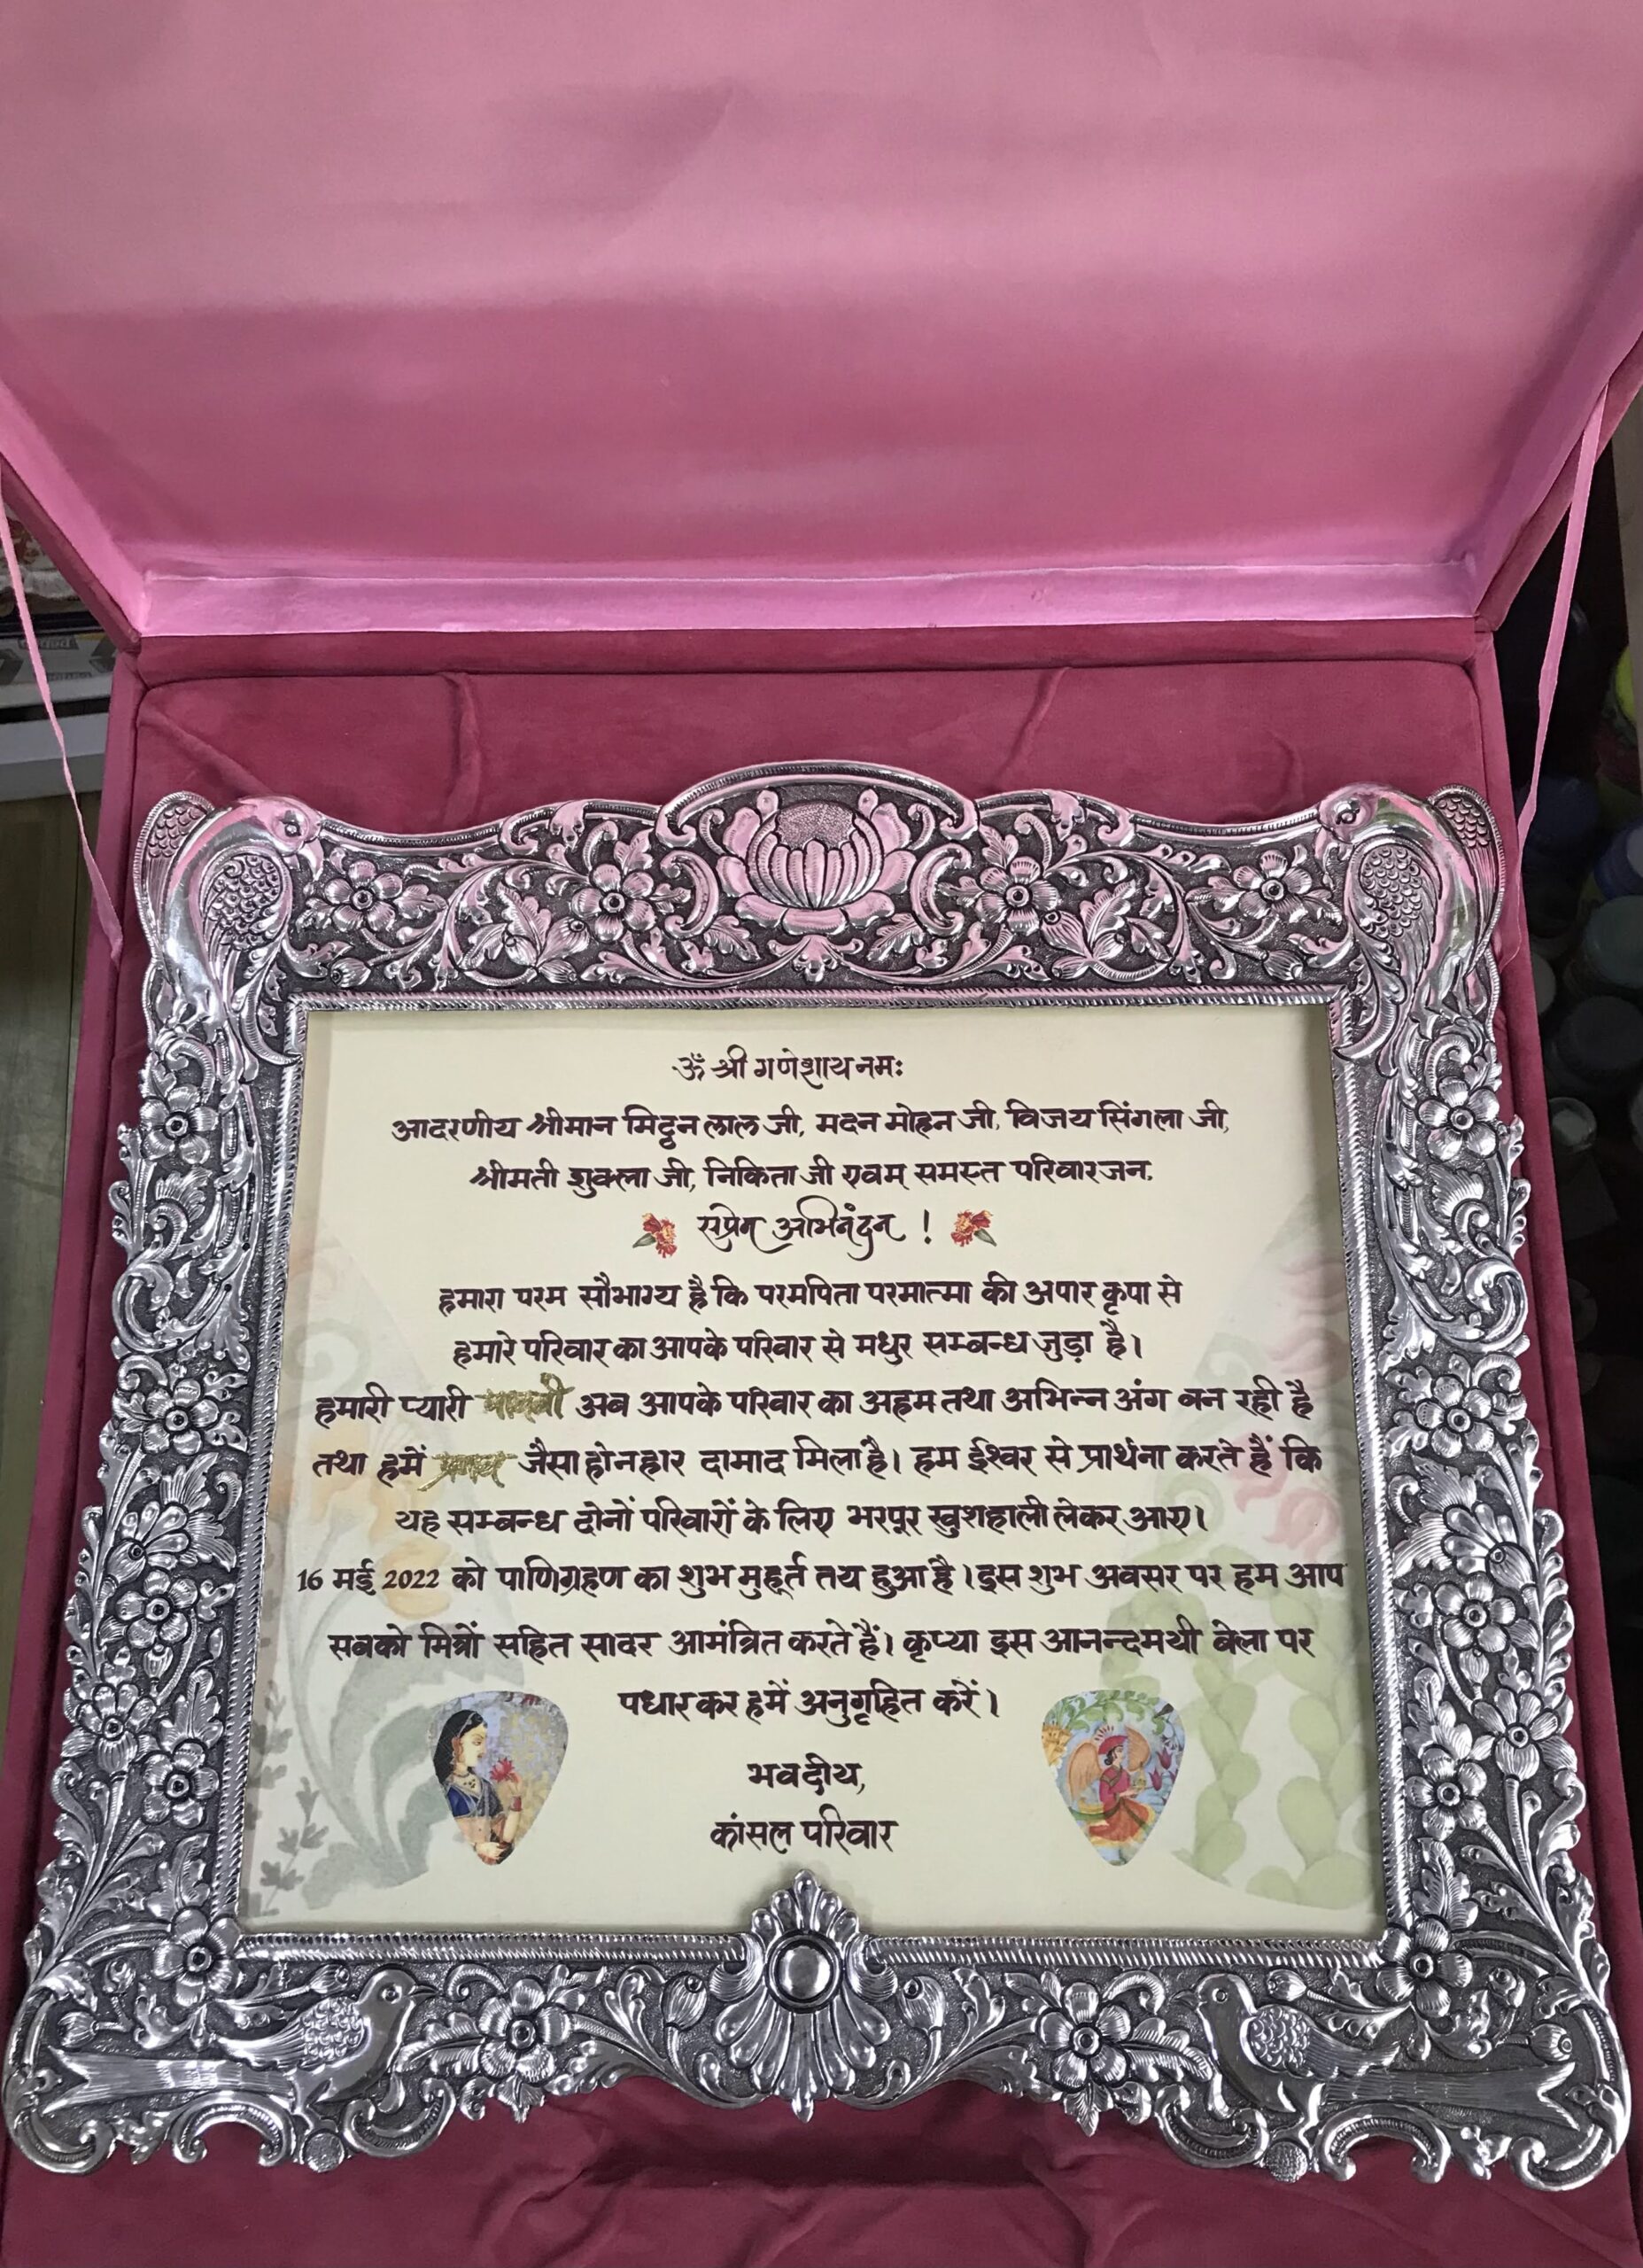 ॐ श्री गणेशाय नमः
आदरणीय श्रीमान मिट्ठन लाल जी, मदन मोहन जी, विजय सिंगला जी,
श्रीमती शुक्ला जी, निकिता जी एवम् समस्त परिवारजन.
सप्रेम अभिनंदन !
हमारा परम सौभाग्य है कि परमपिता परमात्मा की अपार कृपा से
हमारे परिवार का आपके परिवार से मधुर सम्बन्ध जुड़ा है।
हमारी प्यारी अब आपके परिवार का अहम तथा अभिन्न अंग बन रही है
तथा हमें जैसा होनहार दामाद मिला है। हम ईश्वर से प्रार्थना करते हैं कि
यह सम्बन्ध दोनों परिवारों के लिए भरपूर खुशहाली लेकर आए।
16 मई 2022 को पाणिग्रहण का शुभ मुहूर्त तय हुआ है। इस शुभ अवसर पर हम आप
सबको मित्रों सहित सादर आमंत्रित करते हैं। कृप्या इस आनन्दमयी बेला पर
पधार कर हमें अनुगृहित करें।
भवदीय,
कांसल परिवार